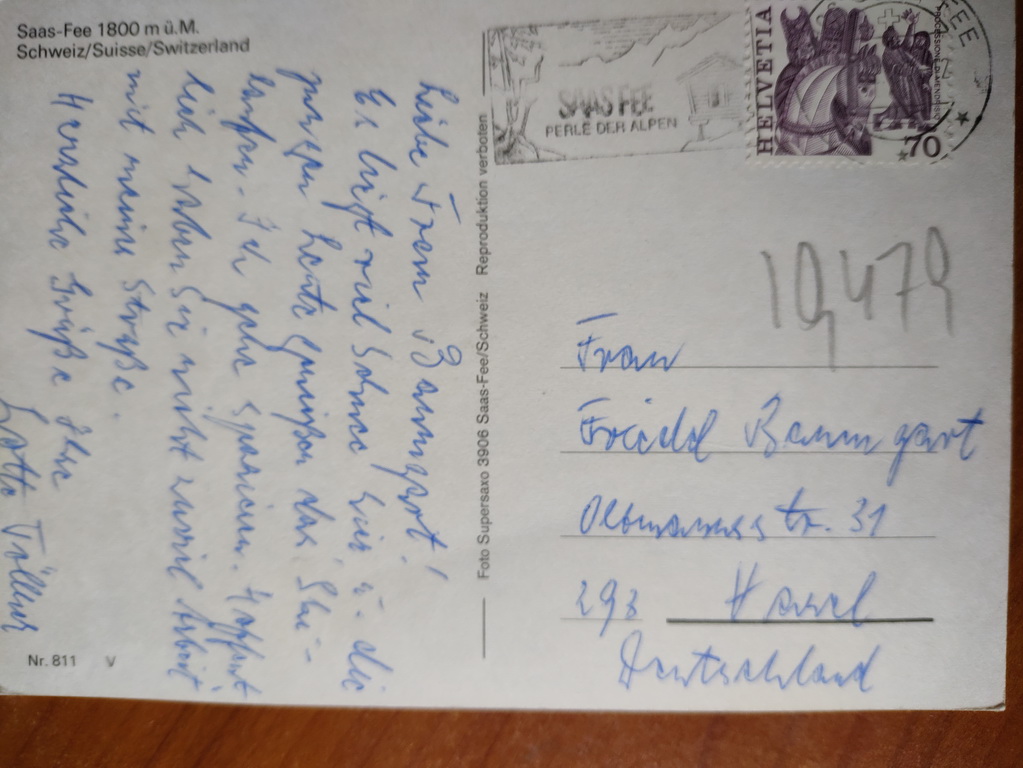 Saas-Fee 1800 m ü.M.
Schweiz/Suisse/Switzerland
Liebe Frau Baumgart!
Es liegt viel Schnee hier u. die
jungen Leute genießen das Ski-
laufen. Ich gehe spazieren. Hoffent-
lich haben Sie nicht zuviel Arbeit
mit meine Straße.
Herzliche Grüße Ihre
Lotte Fölliner
Nr. 811 V
Foto Supersaxo 3906 Saas-Fee/Schweiz Reproduktion verboten
SAAS FEE
PERLE DER ALPEN
HELVETIA
70
FEE
19479
Frau
Friedel Baumgart
str. 31
298
Deutschland